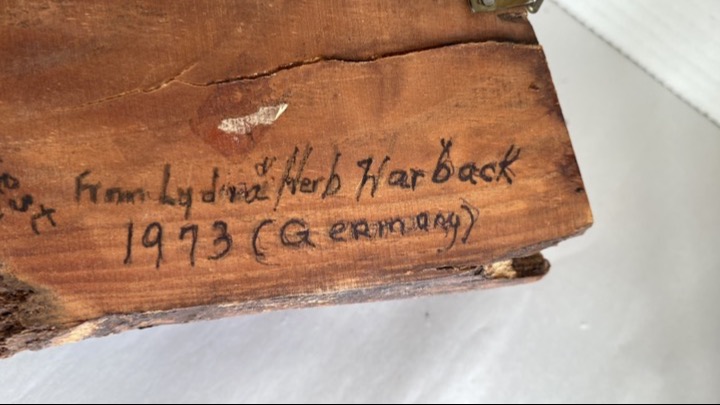 From Lydia & Herb Harback
1973 (Germany)
est